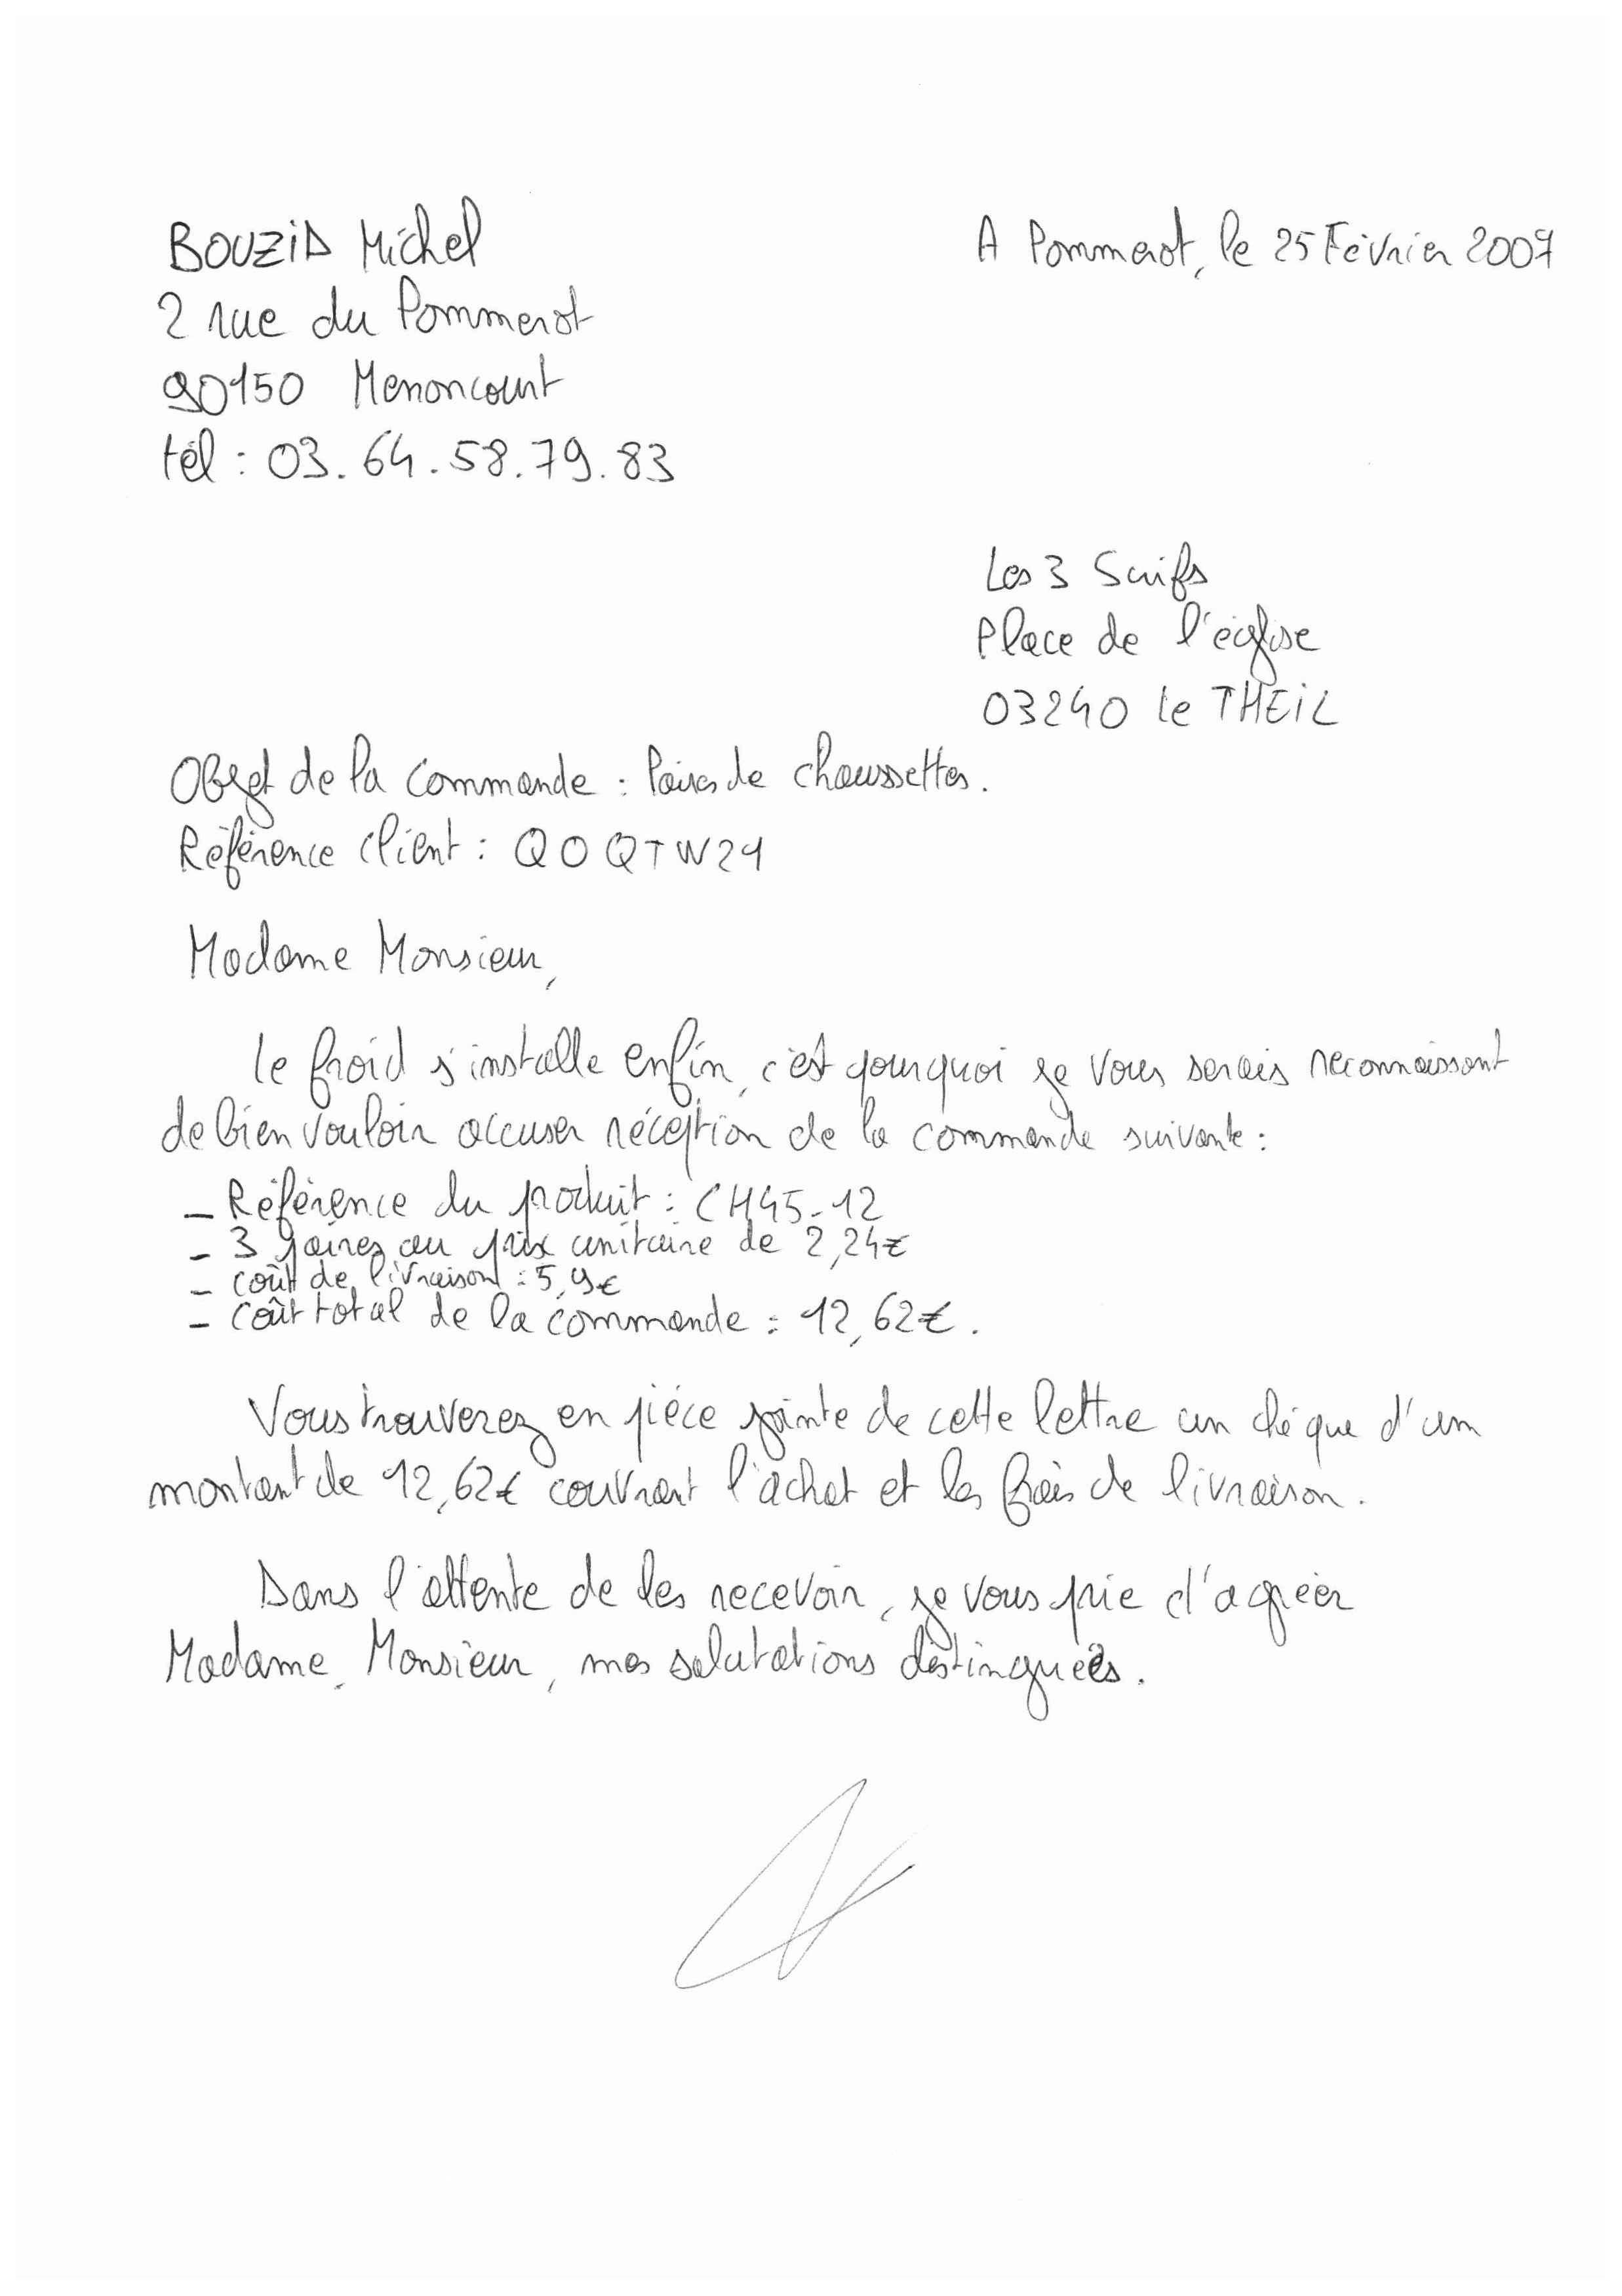 BOUZID Michel
A Pommerot, le 25 Février 2007
2 rue du Pommerot
90150 Menoncourt
tél : 03.64.58.79.83
Les 3 Suifs
Place de l'église
03240 le THEIL
Objet de la commande : Paires de chaussettes.
Référence client : QOQTW24
Madame Monsieur,
le froid s'installe enfin, c'est pourquoi je vous serais reconnaissant
de bien vouloir accuser réception de la commande suivante :
- Référence du produit : CH45-12
- 3 paires au prix unitaire de 2,24€
- coût de livraison : 5,9€
- coût total de la commande : 12,62€.
Vous trouverez en pièce jointe de cette lettre un chéque d'un
montant de 12,62€ couvrant l'achat et les frais de livraison.
Dans l'attente de les recevoir, je vous prie d'agréer
Madame, Monsieur, mes salutations distinguées.